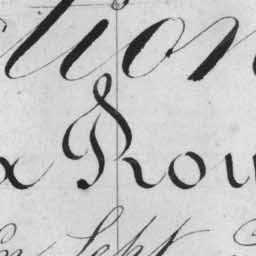 tion
a Rou
Sept